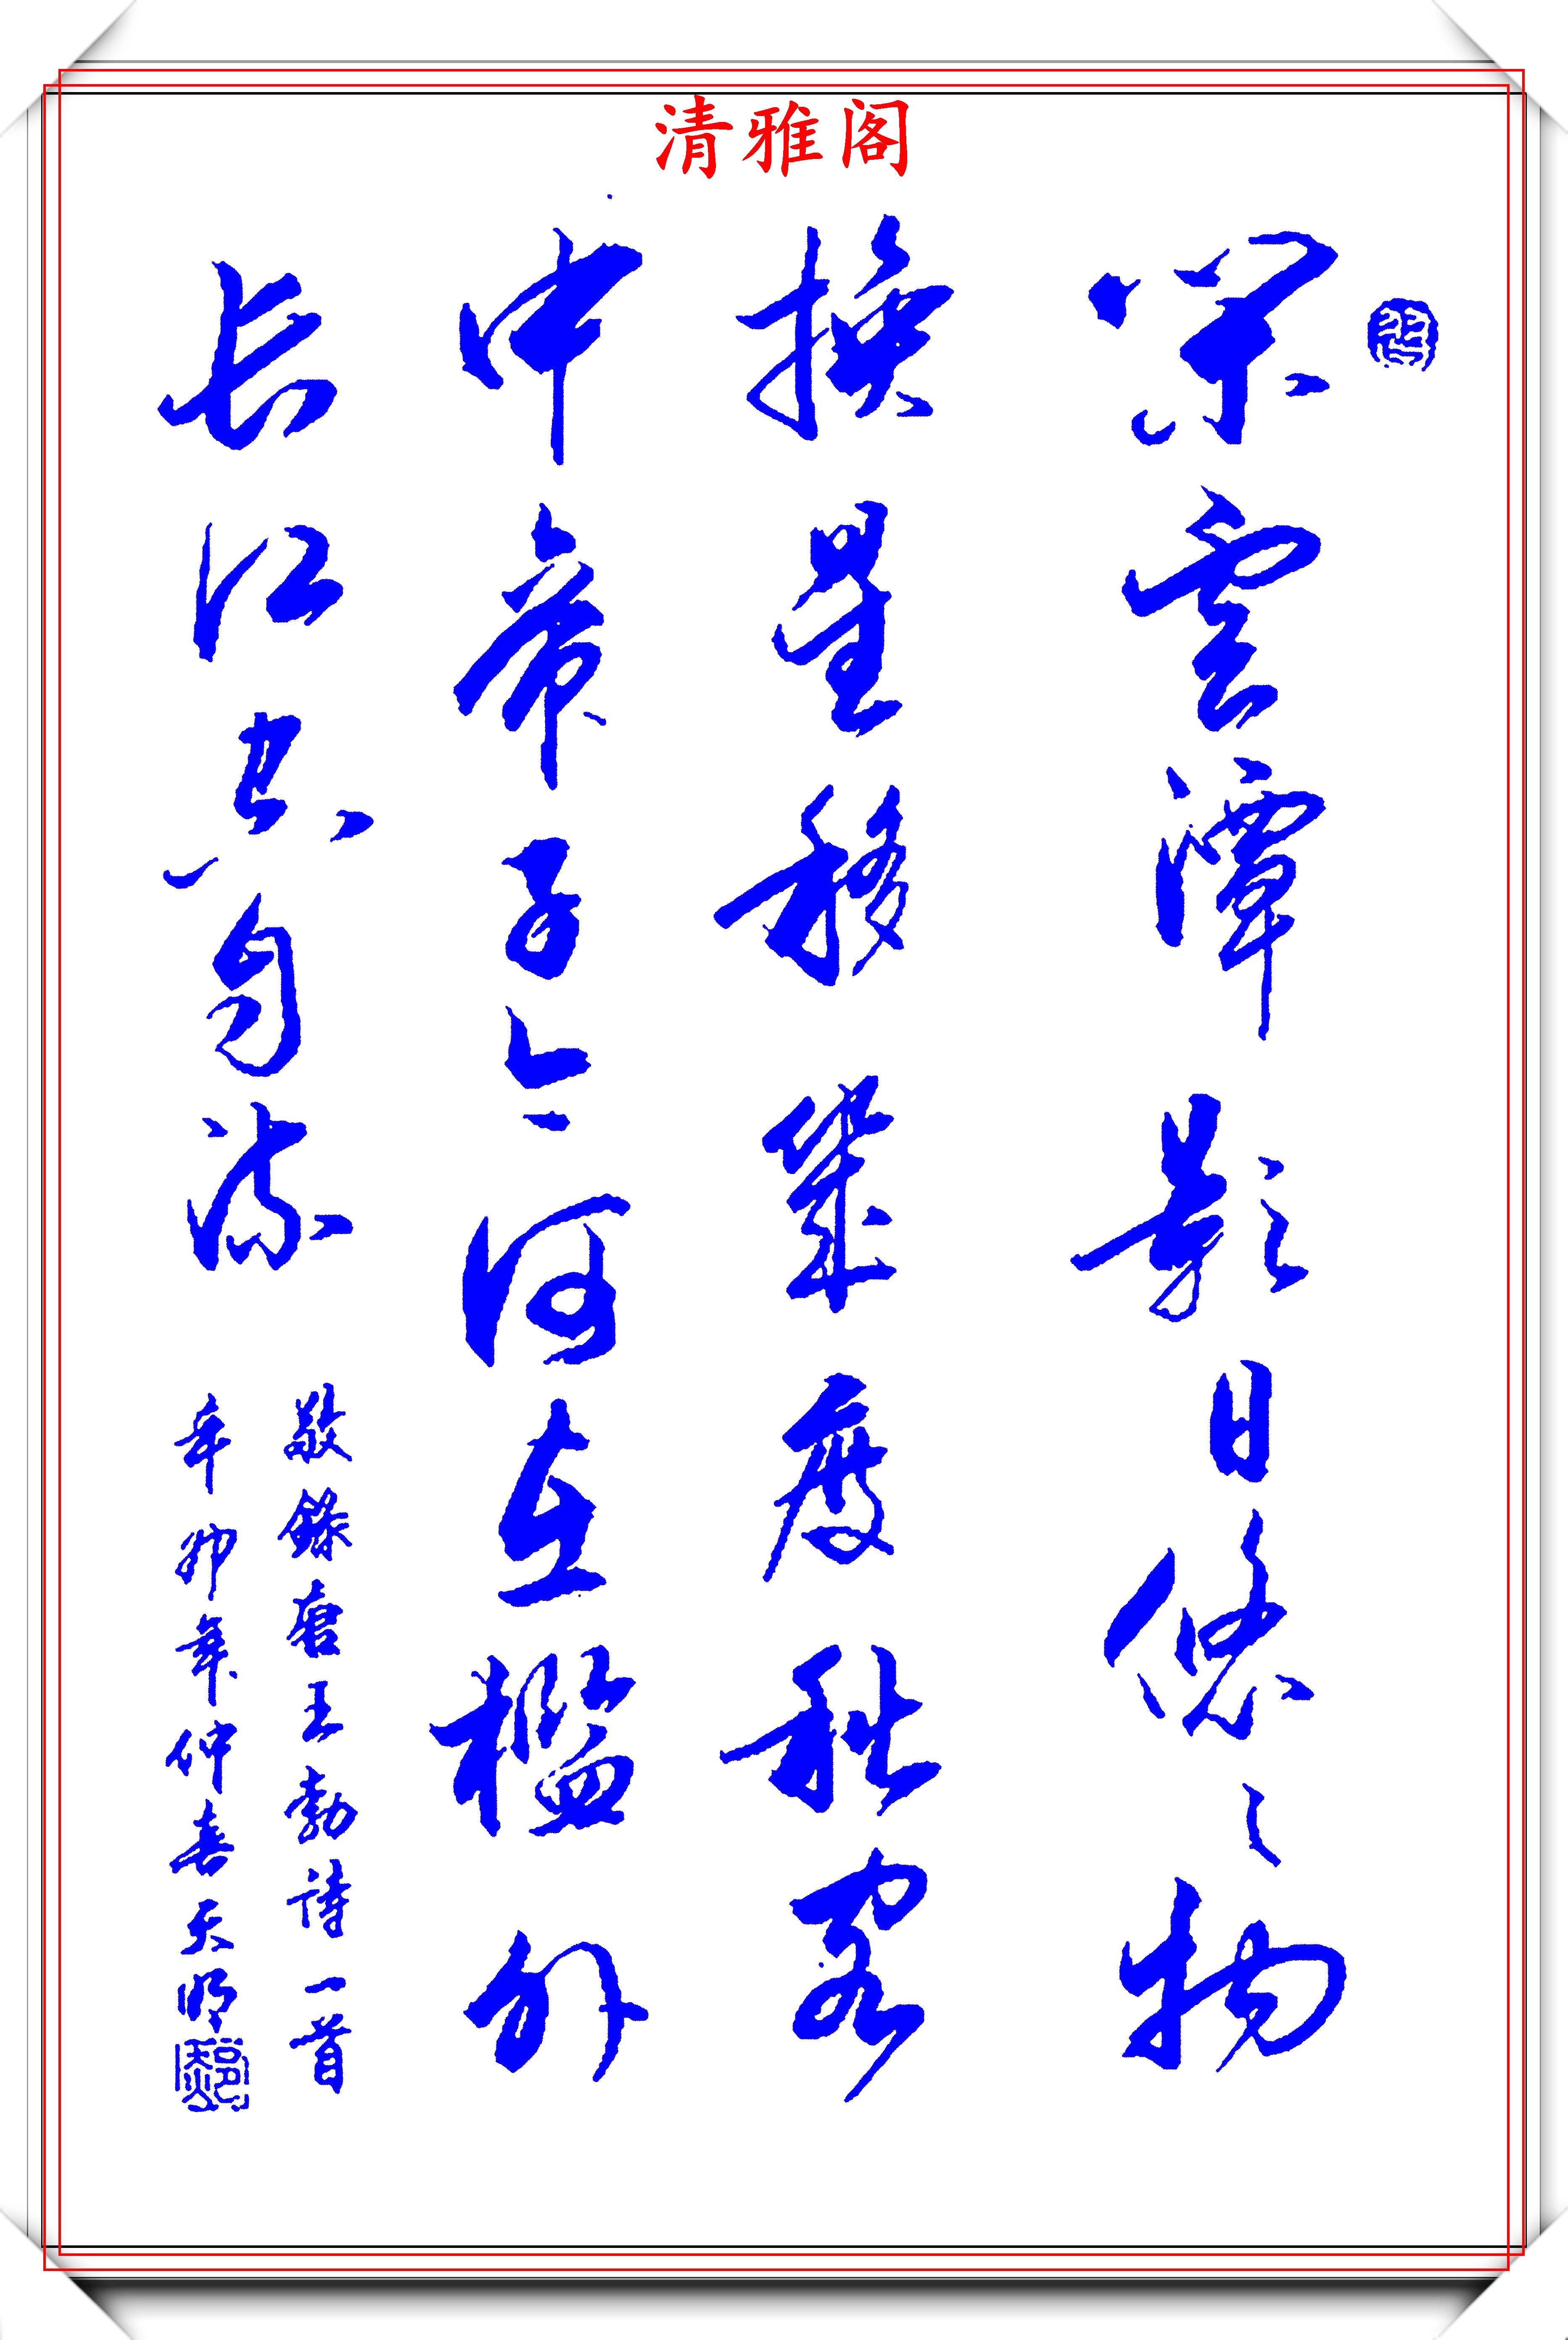 清雅阁
闲雲潭影日悠々物
换星移幾度秋阁
中帝子今何在檻外
长江空自流
敬錄唐王勃詩一首
辛卯年仲春天明